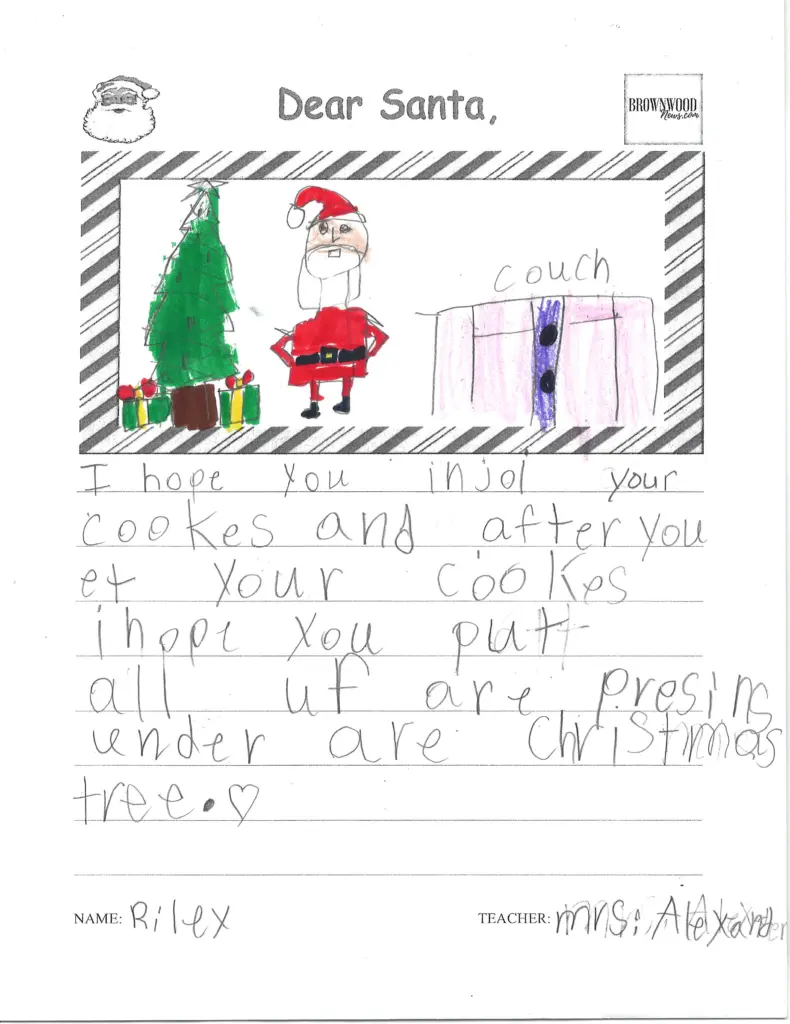 Dear Santa,
BROWNWOOD
News.com
couch
I hope you injoi your
cookes and after you
et your cookes
i hope you putt
all uf are presins
under are Christmas
tree. ♡
NAME: Riley
TEACHER: mrs. Alexander